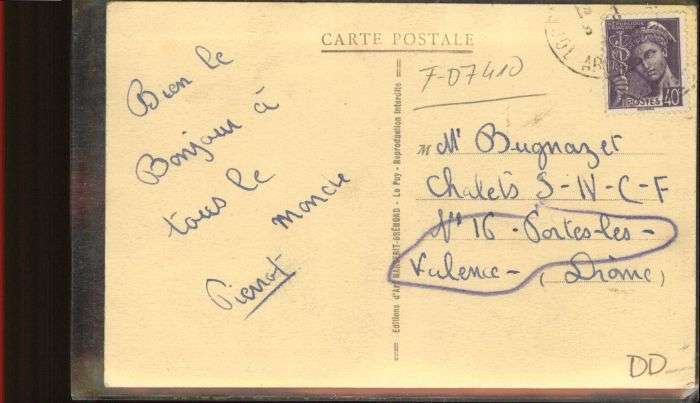 CARTE POSTALE
Bien le
Bonjour à
tous le
monde
Pierrot
Editions d'Art MARGERIT-BRÉMOND - Le Puy - Reproduction Interdite
F-07410
POSTES 40c
M Mr Bugnazet
Chalets S-N-C-F
N° 16 - Portes-les-
Valence - (Drôme)
DD